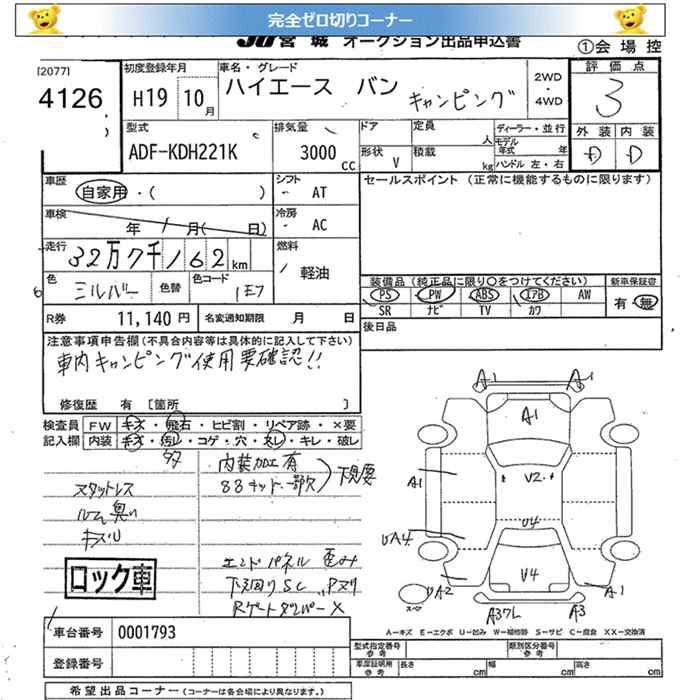 完全ゼロ切りコーナー
JU宮城 オークション出品申込書
①会場控
[2077]
4126
初度登録年月
H19 10月
車名・グレード
ハイエース バン
キャンピング
2WD・4WD
評価点
3
外装 内装
D D
型式
ADF-KDH221K
排気量
3000 CC
ドア
形状 V
定員 人
積載 kg
ディーラー・並行
モデル年式 年
ハンドル 左・右
車歴
自家用・( )
シフト
AT
セールスポイント (正常に機能するものに限ります)
車検
年 月( 日)
冷房
AC
走行
32万7千162km
燃料
軽油
色
シルバー
色替
色コード
1E7
装備品(純正品に限り○をつけてください)
PS PW ABS エアB AW
SR ナビ TV カワ
新車保証書
有・無
R券 11,140円 名変通知期限 月 日
後日品
注意事項申告欄(不具合内容等は具体的に記入して下さい)
車内キャンピング使用要確認!!
修復歴 有 [箇所 ]
検査員記入欄
FW キズ・飛石・ヒビ割・リペア跡・×要
内装 キズ・汚レ・コゲ・穴・スレ・キレ・破レ
タタ
内装加工有
88キット一部欠
下見要
スタットレス
ルーム臭い
キズU
ロック車
エンドパネル 歪み
下廻りSC
Rゲートダンパー×
A1
A1
A1
A1
V2
U4
UA4
V4
UA2
A1
スペア
A37L
A3
A-キズ E-エクボ U-凹み W-補修跡 S-サビ C-腐食 XX-交換済
車台番号 0001793
登録番号
型式指定番号 参考
類別区分番号 参考
車庫証明用 参考 長さ cm 幅 cm 高さ cm
希望出品コーナー (コーナーは各会場により異なります。)